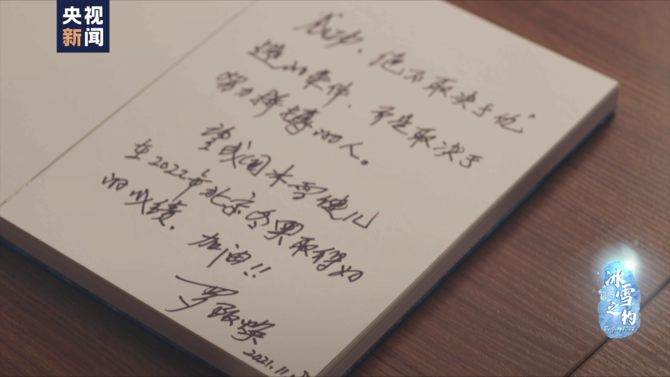 央视
新闻
成功、绝不取决于优
越的条件,而是取决于
努力拼搏的人。
望我国冰雪健儿
在2022年北京冬奥取得好
的成绩,加油!!
罗致焕
2021.11.
冰雪之约